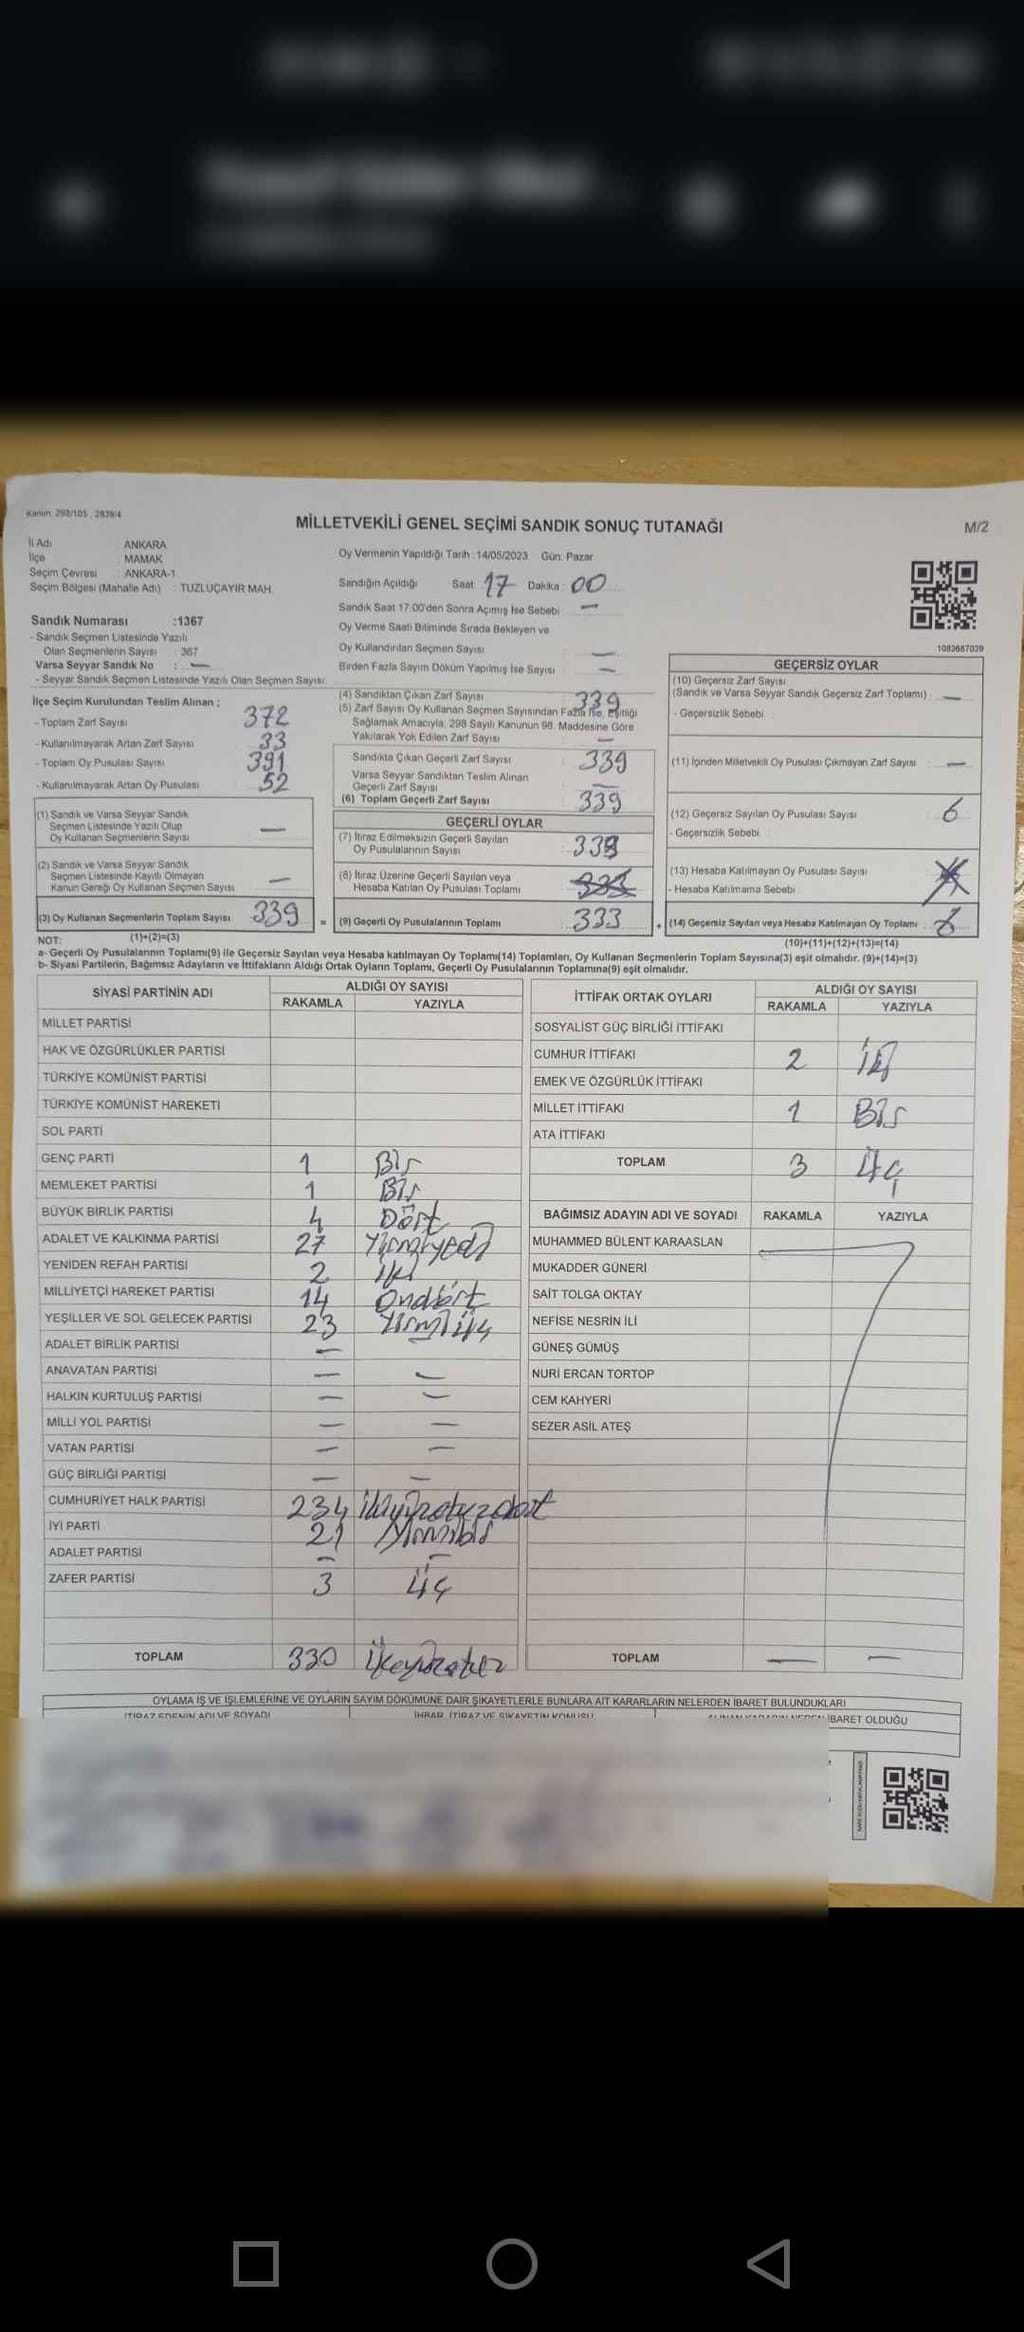 Kanun: 298/105 , 2839/4
MİLLETVEKİLİ GENEL SEÇİMİ SANDIK SONUÇ TUTANAĞI
M/2
İl Adı : ANKARA
İlçe : MAMAK
Seçim Çevresi : ANKARA-1
Seçim Bölgesi (Mahalle Adı) : TUZLUÇAYIR MAH.
Oy Vermenin Yapıldığı Tarih : 14/05/2023 Gün: Pazar
Sandığın Açıldığı Saat: 17 Dakika : 00
Sandık Saat 17.00'den Sonra Açımış İse Sebebi : —
Oy Verme Saati Bitiminde Sırada Bekleyen ve
Oy Kullandırılan Seçmen Sayısı : —
Birden Fazla Sayım Döküm Yapılmış İse Sayısı : —
1083687039
Sandık Numarası :1367
- Sandık Seçmen Listesinde Yazılı
Olan Seçmenlerin Sayısı : 367
Varsa Seyyar Sandık No : —
- Seyyar Sandık Seçmen Listesinde Yazılı Olan Seçmen Sayısı:
İlçe Seçim Kurulundan Teslim Alınan ;
- Toplam Zarf Sayısı 372
- Kullanılmayarak Artan Zarf Sayısı 33
- Toplam Oy Pusulası Sayısı 391
- Kullanılmayarak Artan Oy Pusulası 52
(1) Sandık ve Varsa Seyyar Sandık
Seçmen Listesinde Yazılı Olup
Oy Kullanan Seçmenlerin Sayısı —
(2) Sandık ve Varsa Seyyar Sandık
Seçmen Listesinde Kayıtlı Olmayan
Kanun Gereği Oy Kullanan Seçmen Sayısı —
(3) Oy Kullanan Seçmenlerin Toplam Sayısı 339 =
(4) Sandıktan Çıkan Zarf Sayısı 339
(5) Zarf Sayısı Oy Kullanan Seçmen Sayısından Fazla İse, Eşitliği
Sağlamak Amacıyla, 298 Sayılı Kanunun 98. Maddesine Göre
Yakılarak Yok Edilen Zarf Sayısı —
Sandıkta Çıkan Geçerli Zarf Sayısı 339
Varsa Seyyar Sandıktan Teslim Alınan
Geçerli Zarf Sayısı —
(6) Toplam Geçerli Zarf Sayısı 339
GEÇERLİ OYLAR
(7) İtiraz Edilmeksizin Geçerli Sayılan
Oy Pusulalarının Sayısı
(8) İtiraz Üzerine Geçerli Sayılan veya
Hesaba Katılan Oy Pusulası Toplamı 333
(9) Geçerli Oy Pusulalarının Toplamı 333 +
GEÇERSİZ OYLAR
(10) Geçersiz Zarf Sayısı
(Sandık ve Varsa Seyyar Sandık Geçersiz Zarf Toplamı) : —
- Geçersizlik Sebebi :
(11) İçinden Milletvekili Oy Pusulası Çıkmayan Zarf Sayısı : —
(12) Geçersiz Sayılan Oy Pusulası Sayısı : 6
- Geçersizlik Sebebi :
(13) Hesaba Katılmayan Oy Pusulası Sayısı :
- Hesaba Katılmama Sebebi :
(14) Geçersiz Sayılan veya Hesaba Katılmayan Oy Toplamı : 6
NOT: (1)+(2)=(3)
(10)+(11)+(12)+(13)=(14)
a- Geçerli Oy Pusulalarının Toplamı(9) ile Geçersiz Sayılan veya Hesaba katılmayan Oy Toplamı(14) Toplamları, Oy Kullanan Seçmenlerin Toplam Sayısına(3) eşit olmalıdır. (9)+(14)=(3)
b- Siyasi Partilerin, Bağımsız Adayların ve İttifakların Aldığı Ortak Oyların Toplamı, Geçerli Oy Pusulalarının Toplamına(9) eşit olmalıdır.
SİYASİ PARTİNİN ADI
ALDIĞI OY SAYISI
RAKAMLA YAZIYLA
MİLLET PARTİSİ
HAK VE ÖZGÜRLÜKLER PARTİSİ
TÜRKİYE KOMÜNİST PARTİSİ
TÜRKİYE KOMÜNİST HAREKETİ
SOL PARTİ
GENÇ PARTİ 1 Bir
MEMLEKET PARTİSİ 1 Bir
BÜYÜK BİRLİK PARTİSİ 4 Dört
ADALET VE KALKINMA PARTİSİ 27 Yirmiyedi
YENİDEN REFAH PARTİSİ 2 İki
MİLLİYETÇİ HAREKET PARTİSİ 14 Ondört
YEŞİLLER VE SOL GELECEK PARTİSİ 23 Yirmiüç
ADALET BİRLİK PARTİSİ —
ANAVATAN PARTİSİ — —
HALKIN KURTULUŞ PARTİSİ — —
MİLLİ YOL PARTİSİ — —
VATAN PARTİSİ — —
GÜÇ BİRLİĞİ PARTİSİ — —
CUMHURİYET HALK PARTİSİ 234 İkiyüzotuzdört
İYİ PARTİ 21 Yirmibir
ADALET PARTİSİ — —
ZAFER PARTİSİ 3 üç
TOPLAM 330
İTTİFAK ORTAK OYLARI
ALDIĞI OY SAYISI
RAKAMLA YAZIYLA
SOSYALİST GÜÇ BİRLİĞİ İTTİFAKI
CUMHUR İTTİFAKI 2 İki
EMEK VE ÖZGÜRLÜK İTTİFAKI
MİLLET İTTİFAKI 1 Bir
ATA İTTİFAKI
TOPLAM 3 üç
BAĞIMSIZ ADAYIN ADI VE SOYADI RAKAMLA YAZIYLA
MUHAMMED BÜLENT KARAASLAN
MUKADDER GÜNERİ
SAİT TOLGA OKTAY
NEFİSE NESRİN İLİ
GÜNEŞ GÜMÜŞ
NURİ ERCAN TORTOP
CEM KAHYERİ
SEZER ASİL ATEŞ
TOPLAM — —
OYLAMA İŞ VE İŞLEMLERİNE VE OYLARIN SAYIM DÖKÜMÜNE DAİR ŞİKAYETLERLE BUNLARA AİT KARARLARIN NELERDEN İBARET BULUNDUKLARI
İTİRAZ EDENİN ADI VE SOYADI İHBAR, İTİRAZ VE ŞİKAYETİN KONUSU İBARET OLDUĞU